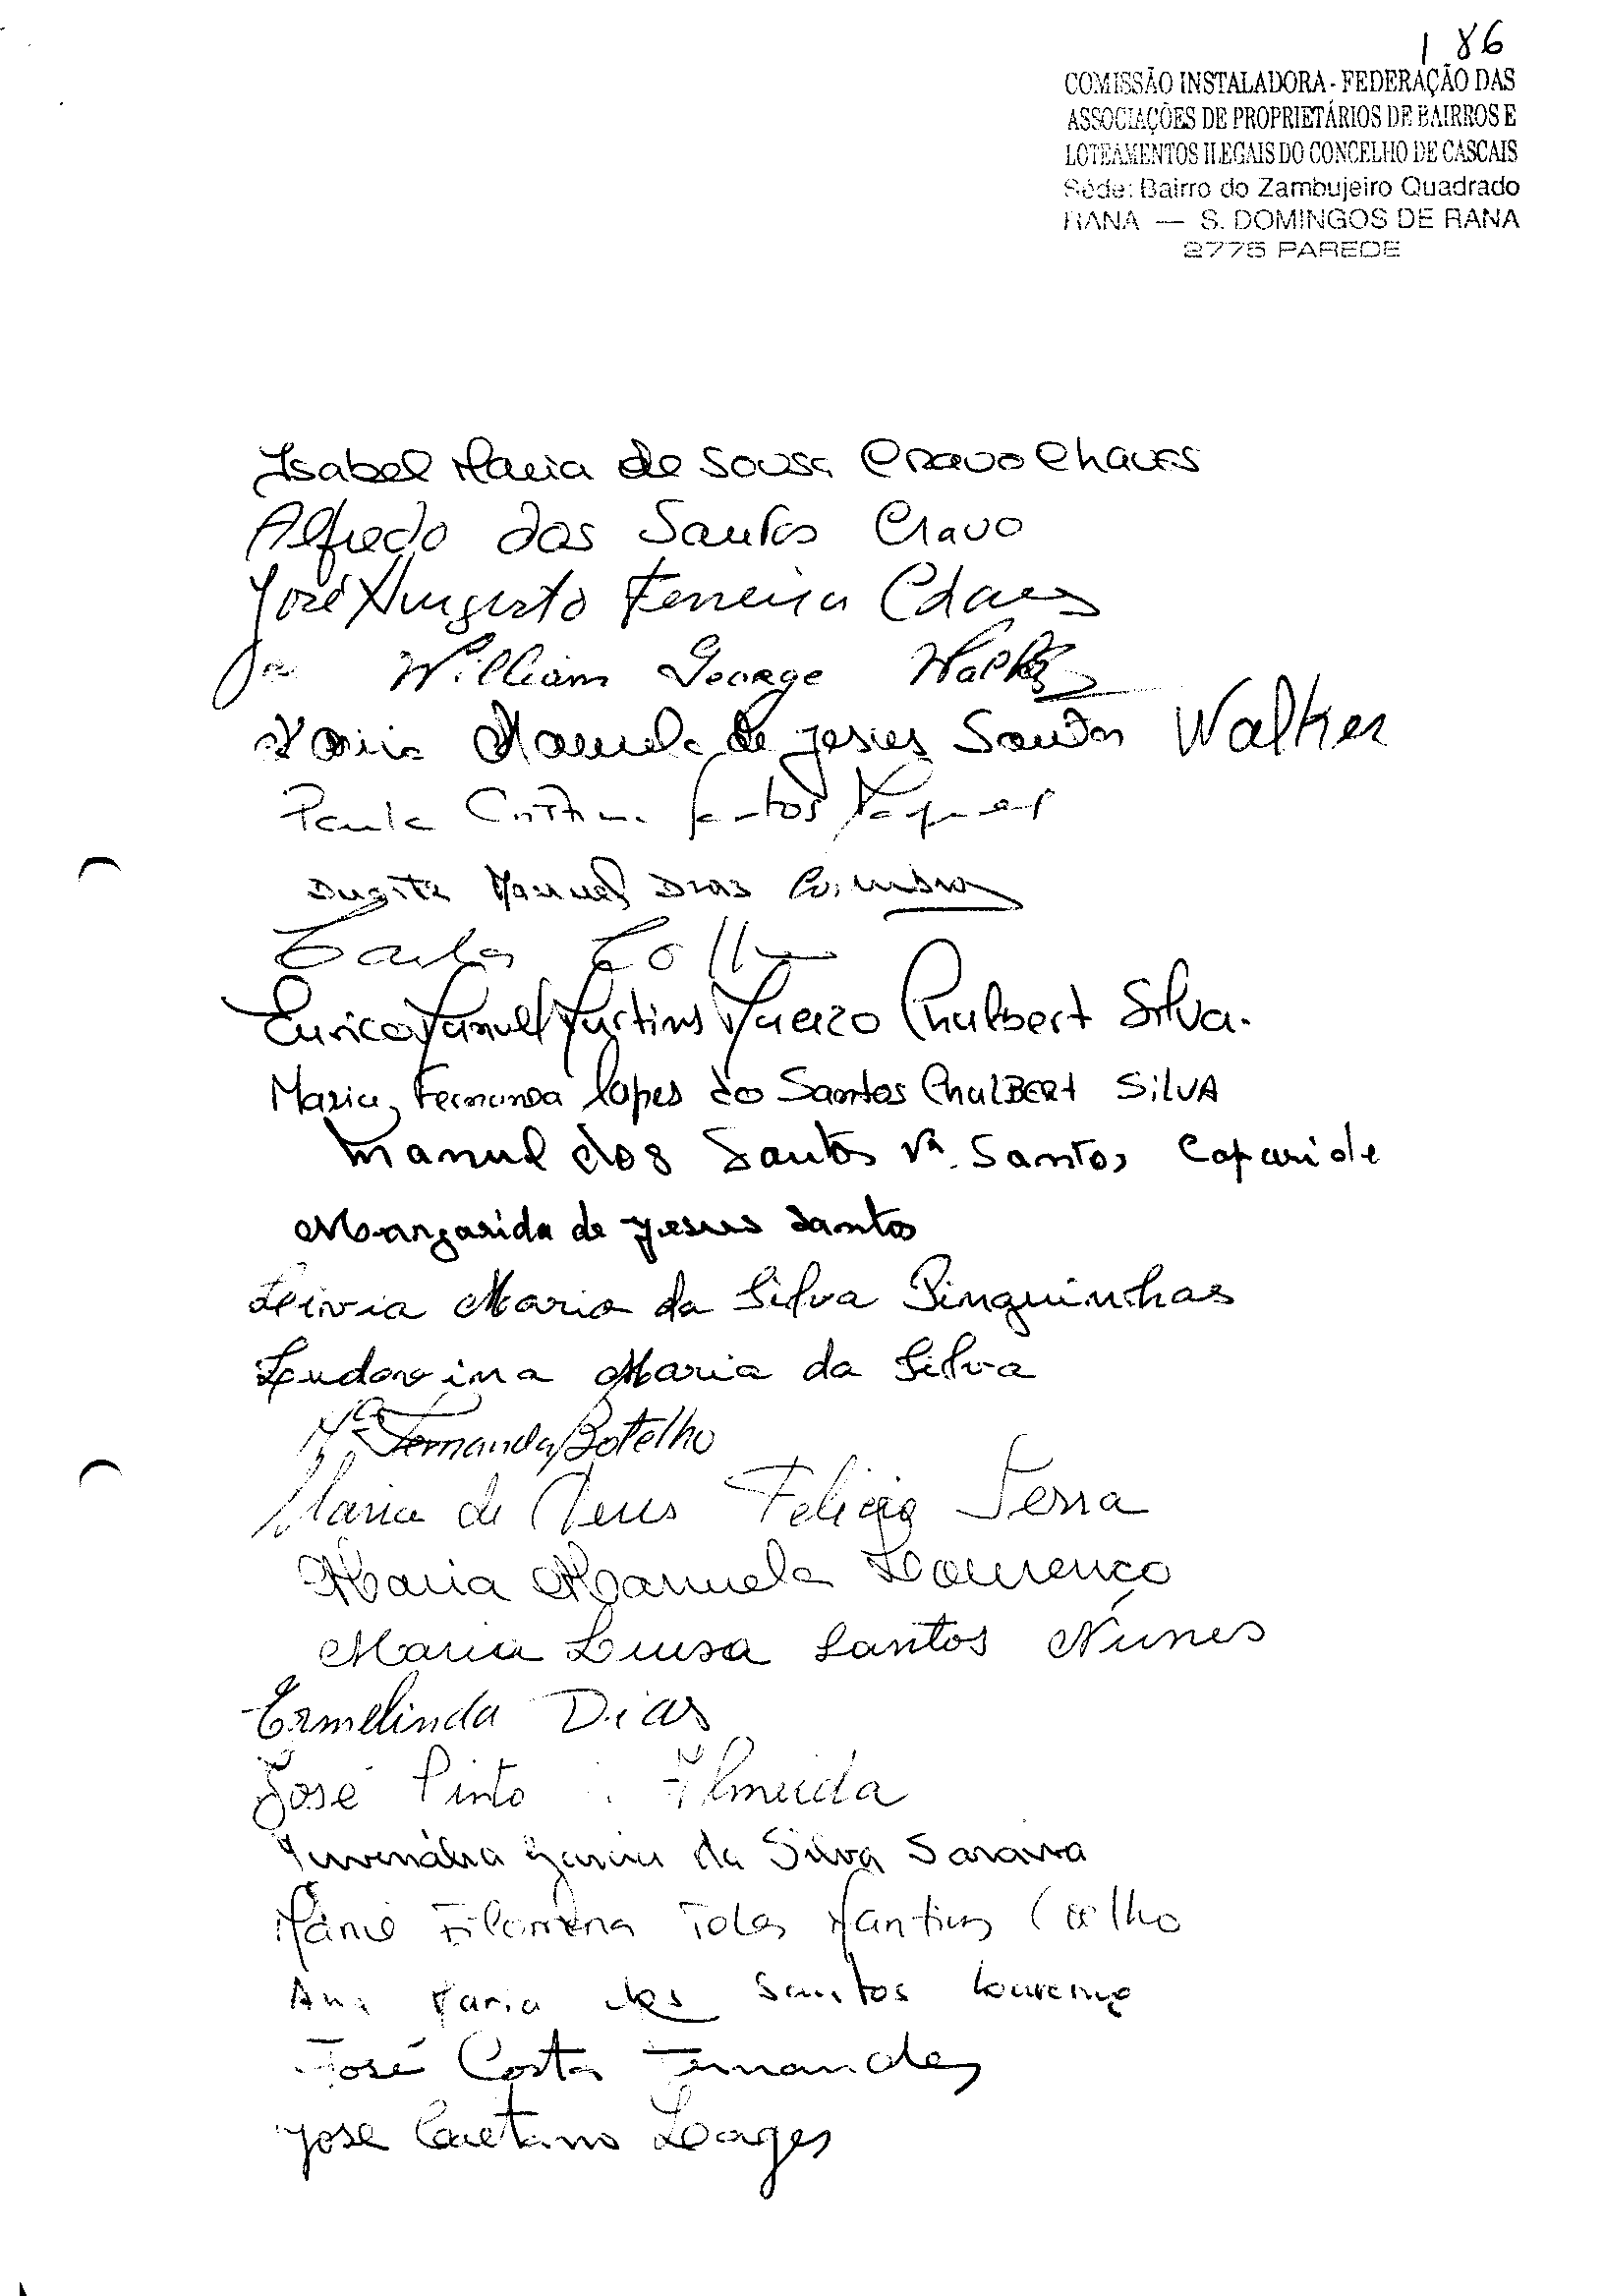 186
COMISSÃO INSTALADORA - FEDERAÇÃO DAS
ASSOCIAÇÕES DE PROPRIETÁRIOS DE BAIRROS E
LOTEAMENTOS ILEGAIS DO CONCELHO DE CASCAIS
Séde: Bairro do Zambujeiro Quadrado
RANA — S. DOMINGOS DE RANA
2775 PAREDE
Isabel Maria de Sousa Cravo Chaves
Alfredo dos Santos Cravo
José Augusto Ferreira Chaves
William George Walker
Maria Manuela de Jesus Santos Walker
Paula Cristina Santos
Manuel Dias Coimbra
Carlos
Eurico Manuel Martins Chalbert Silva.
Maria Fernanda Lopes do Santos Chalbert Silva
Manuel dos Santos Vª. Santos, Caparide
Margarida de Jesus Santos
Livia Maria da Silva Pinguinhas
Ludovina Maria da Silva
Mª Fernanda Botelho
Maria de Deus Felicia Serra
Maria Manuela Lourenço
Maria Luisa Santos Nunes
Ermelinda Dias
José Pinto Almeida
Juvenália Garcia da Silva Saraiva
Maria Filomena Martins Coelho
Ana Maria dos Santos Lourenço
José Costa Fernandes
José Caetano Lages